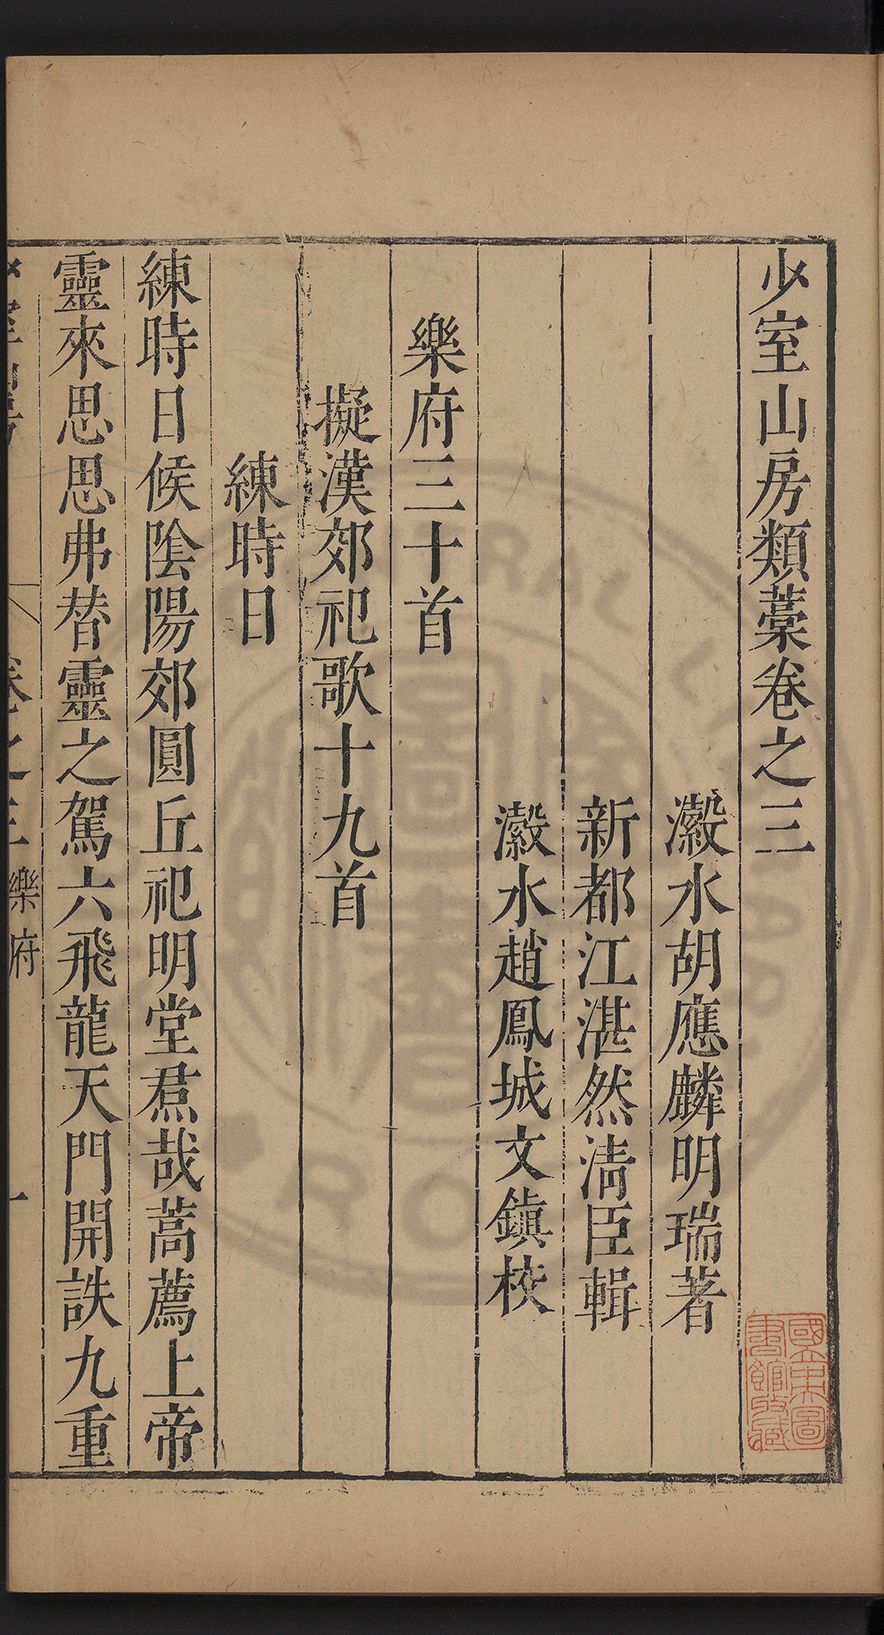 少室山房類藁卷之三
瀫水胡應麟明瑞著
新都江湛然清臣輯
瀫水趙鳳城文鎮校
樂府三十首
擬漢郊祀歌十九首
練時日
練時日候陰陽郊圓丘祀明堂焄哉蒿薦上帝
靈來思思弗替靈之駕六飛龍天門開詄九重
卷之三
樂府
一
國立中央圖書館收藏